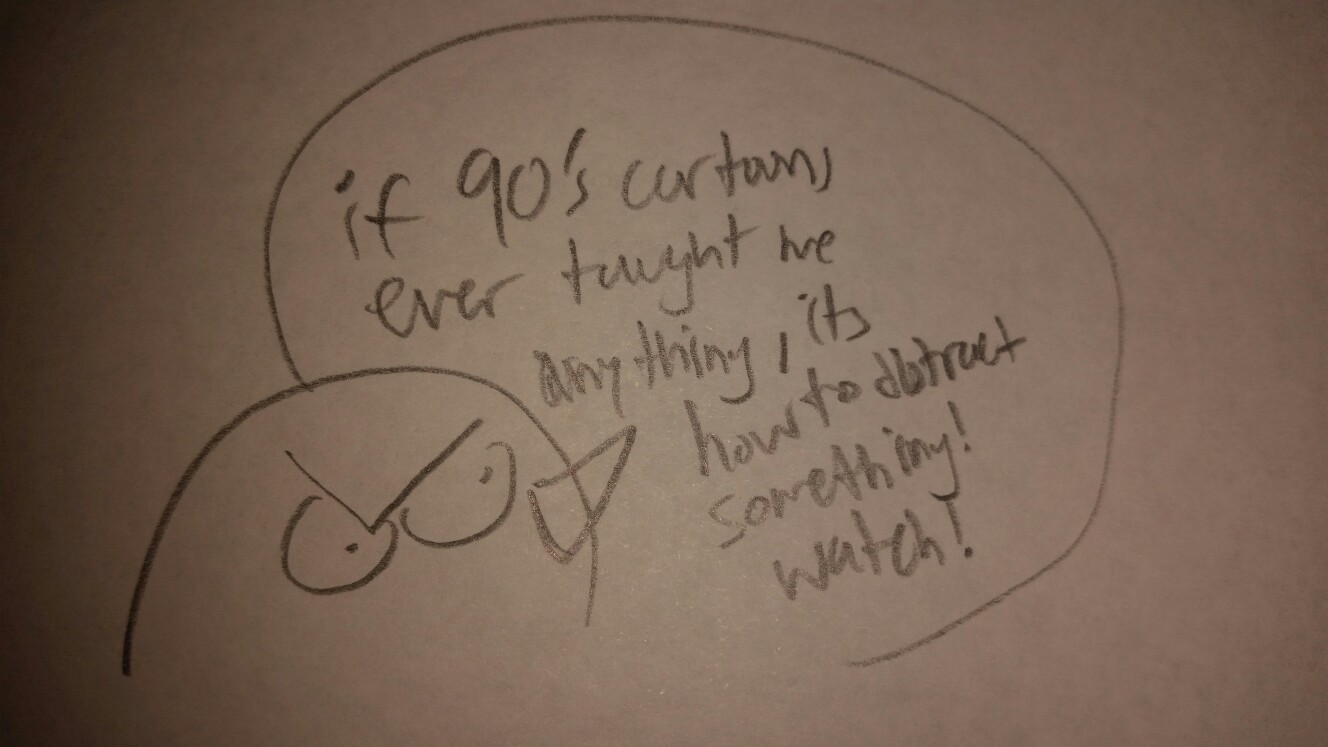 if 90's cartoons
ever taught me
anything, its
how to distract
something!
watch!